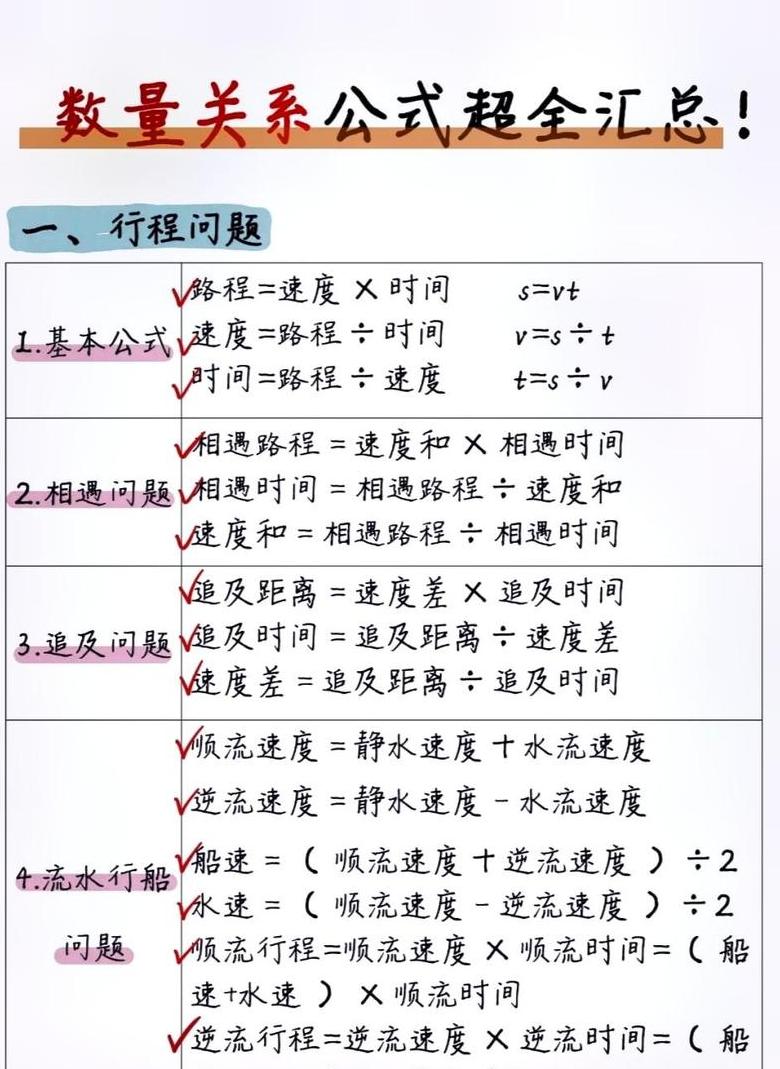 数量关系公式超全汇总!
一、行程问题
1.基本公式
路程=速度×时间 s=vt
速度=路程÷时间 v=s÷t
时间=路程÷速度 t=s÷v
2.相遇问题
相遇路程=速度和×相遇时间
相遇时间=相遇路程÷速度和
速度和=相遇路程÷相遇时间
3.追及问题
追及距离=速度差×追及时间
追及时间=追及距离÷速度差
速度差=追及距离÷追及时间
4.流水行船
问题
顺流速度=静水速度+水流速度
逆流速度=静水速度-水流速度
船速=(顺流速度+逆流速度)÷2
水速=(顺流速度-逆流速度)÷2
顺流行程=顺流速度×顺流时间=(船
速+水速)×顺流时间
逆流行程=逆流速度×逆流时间=(船